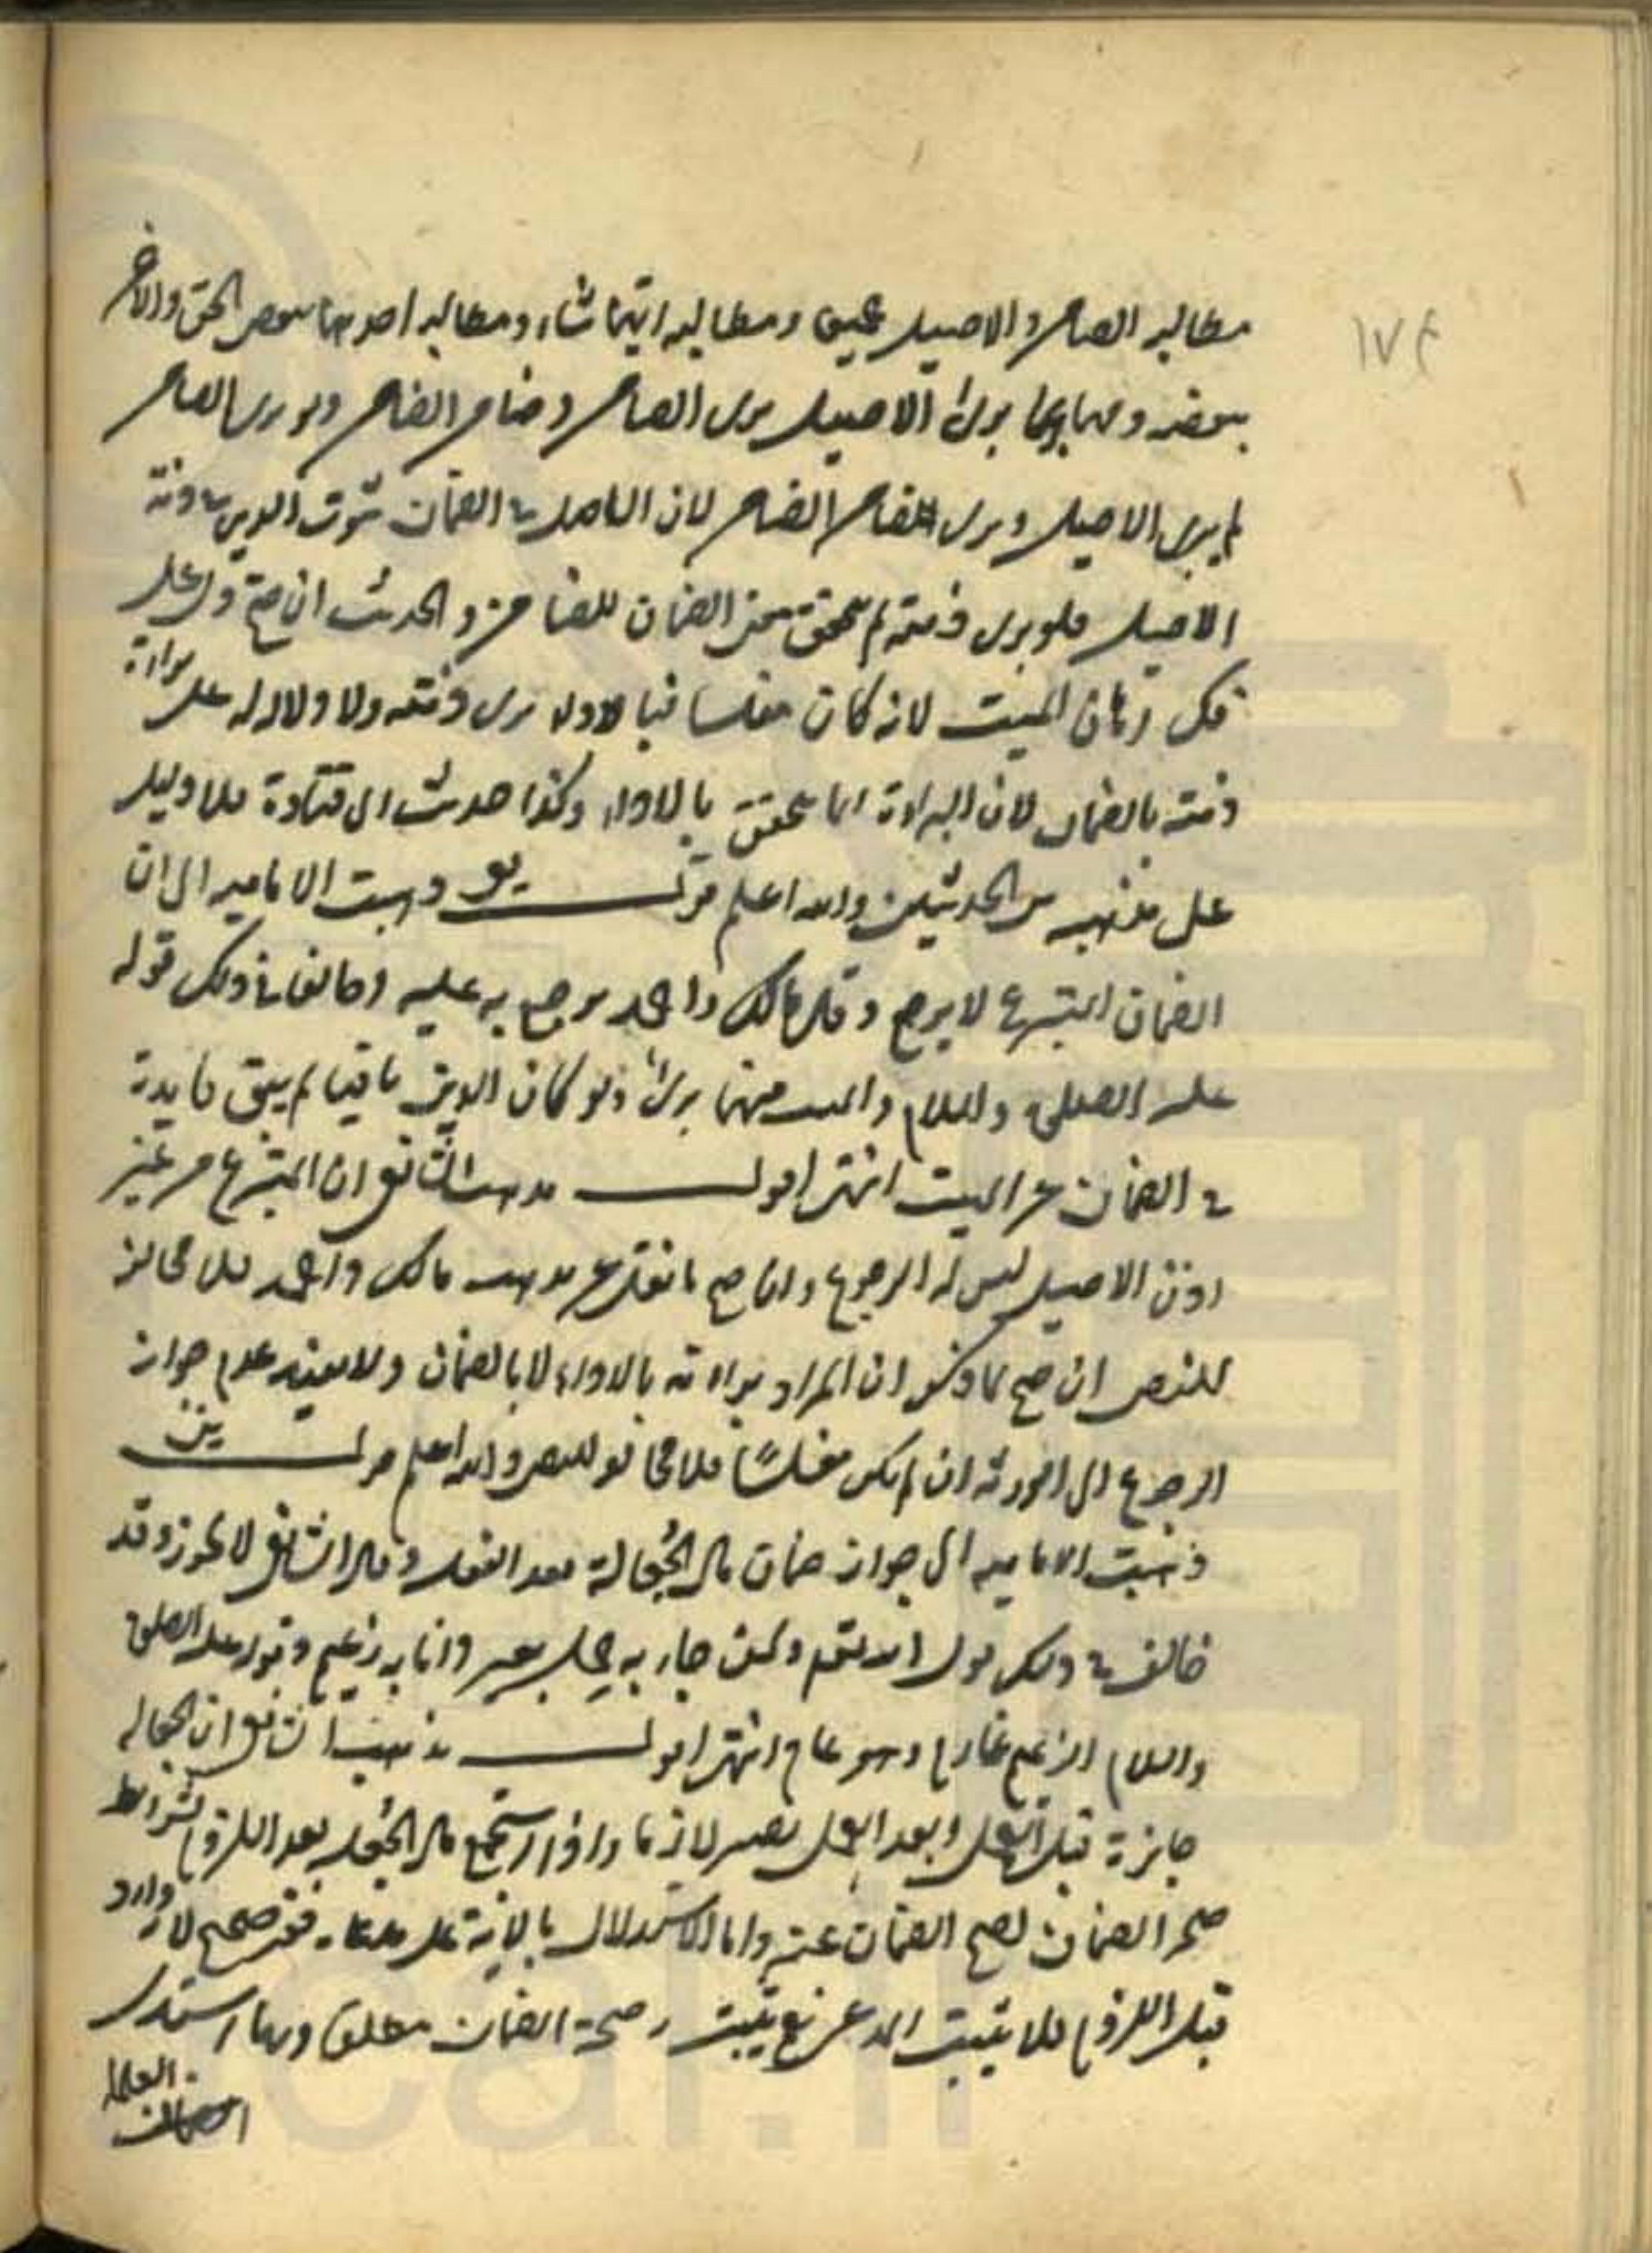 ١٧٤
مطالبه الضامن والاصيل جميعا ومطالبه ايهما شاء ومطالبه احدهما ببعض الحق والاخر
ببعضه ومهما برئ الاصيل برئ الضامن وضامن الضامن ولو برئ الضامن
لم يبرئ الاصيل وبرئ الضامن الضامن لان الاصل في الضمان ثبوت الدين في ذمة
الاصيل فلو برئ ذمته لم يتحقق الضمان للضامن والحديث ان صح دل على
فك رهان الميت لانه كان مفلسا فبالاداء برئ ذمته ولا دلاله على براءة
ذمته بالضمان لان البراءة انما تتحقق بالاداء وكذا حديث ابي قتادة فلا دليل
على مذهبه من الحديثين والله اعلم قوله يو ذهبت الاماميه الى ان
الضمان المتبرع لا يرجع وقال مالك واحمد يرجع به عليه وخالفا في ذلك قوله
عليه الصلوة والسلام والميت منهما برئ ولو كان الدين باقيا لم يبق فايدة
في الضمان عن الميت انتهى اقول مذهب الشافعي ان المتبرع من غير
اذن الاصيل ليس له الرجوع وان صح ما نقل عن مذهب مالك واحمد فلا مخالفة
للنص ان صح لما ذكر ان المراد براءته بالاداء لا بالضمان ولا يفيد عدم جواز
الرجوع الى الورثه ان لم يكن مفلسًا فلا مخالفه للنص والله اعلم قوله يز
ذهبت الاماميه الى جواز ضمان مال الجُعالة بعد الفعل وقال الشافعي لا يجوز وقد
خالف في ذلك قول الله تعالى ولمن جاء به حمل بعير وانا به زعيم وقوله عليه الصلوة
والسلام الزعيم غارم وهو عام انتهى اقول مذهب الشافعي ان الجعاله
جايزة قبل العمل وبعد العمل يصير لازما واذا استجمع مال الجُعل بعد اللزوم شرايط
صحة الضمان يصح الضمان عنه واما الاستدلال بالاية على مدعاه فغير صحيح لانه وارد
قبل اللزوم فلا يثبت المدعى نعم يثبت صحة الضمان مطلقا وبها استدل
العلماء